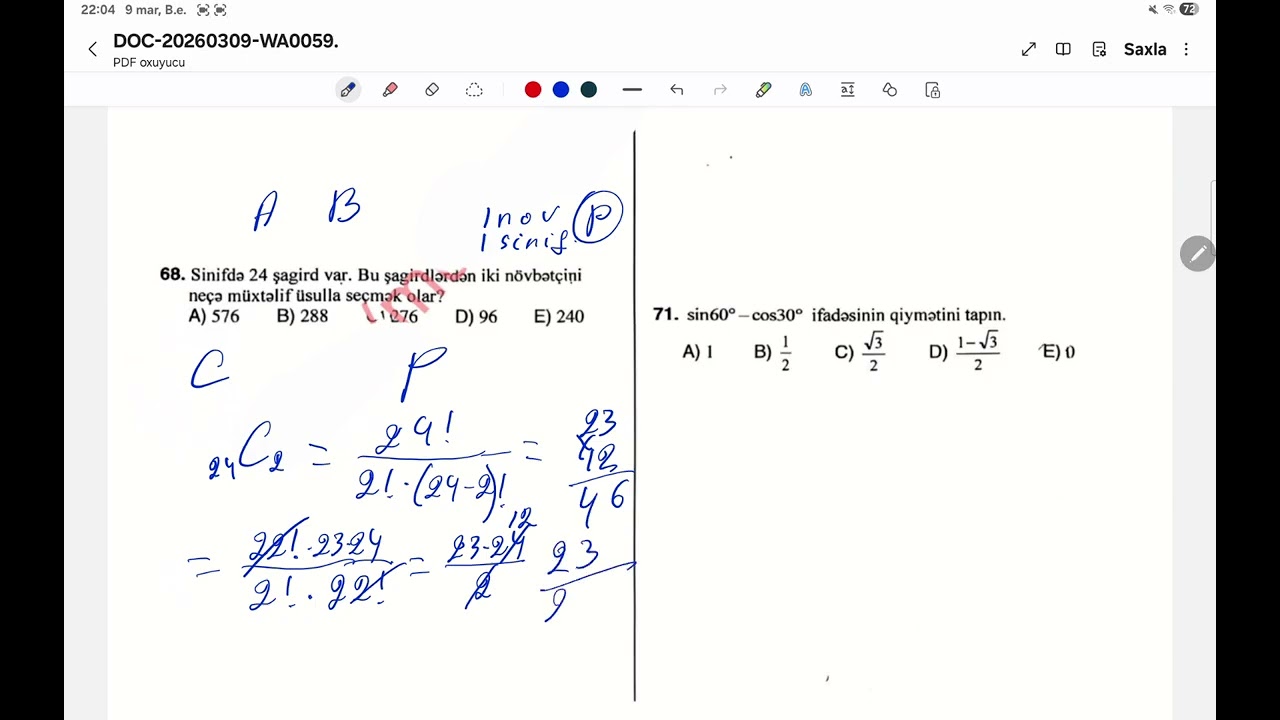 22:04 9 mar, B.e. 72
DOC-20260309-WA0059.
PDF oxuyucu
Saxla
A B
1 nov P
1 sinif.
68. Sinifdə 24 şagird var. Bu şagirdlərdən iki növbətçini
neçə müxtəlif üsulla seçmək olar?
A) 576 B) 288 276 D) 96 E) 240
C P
24C2 = 24! / 2! · (24-2)! =
23
12
46
23
= 22! · 23 24 / 2! · 22! = 23 · 24 / 2
12
71. sin60° – cos30° ifadəsinin qiymətini tapın.
A) 1 B) 1/2 C) √3/2 D) 1–√3/2 E) 0